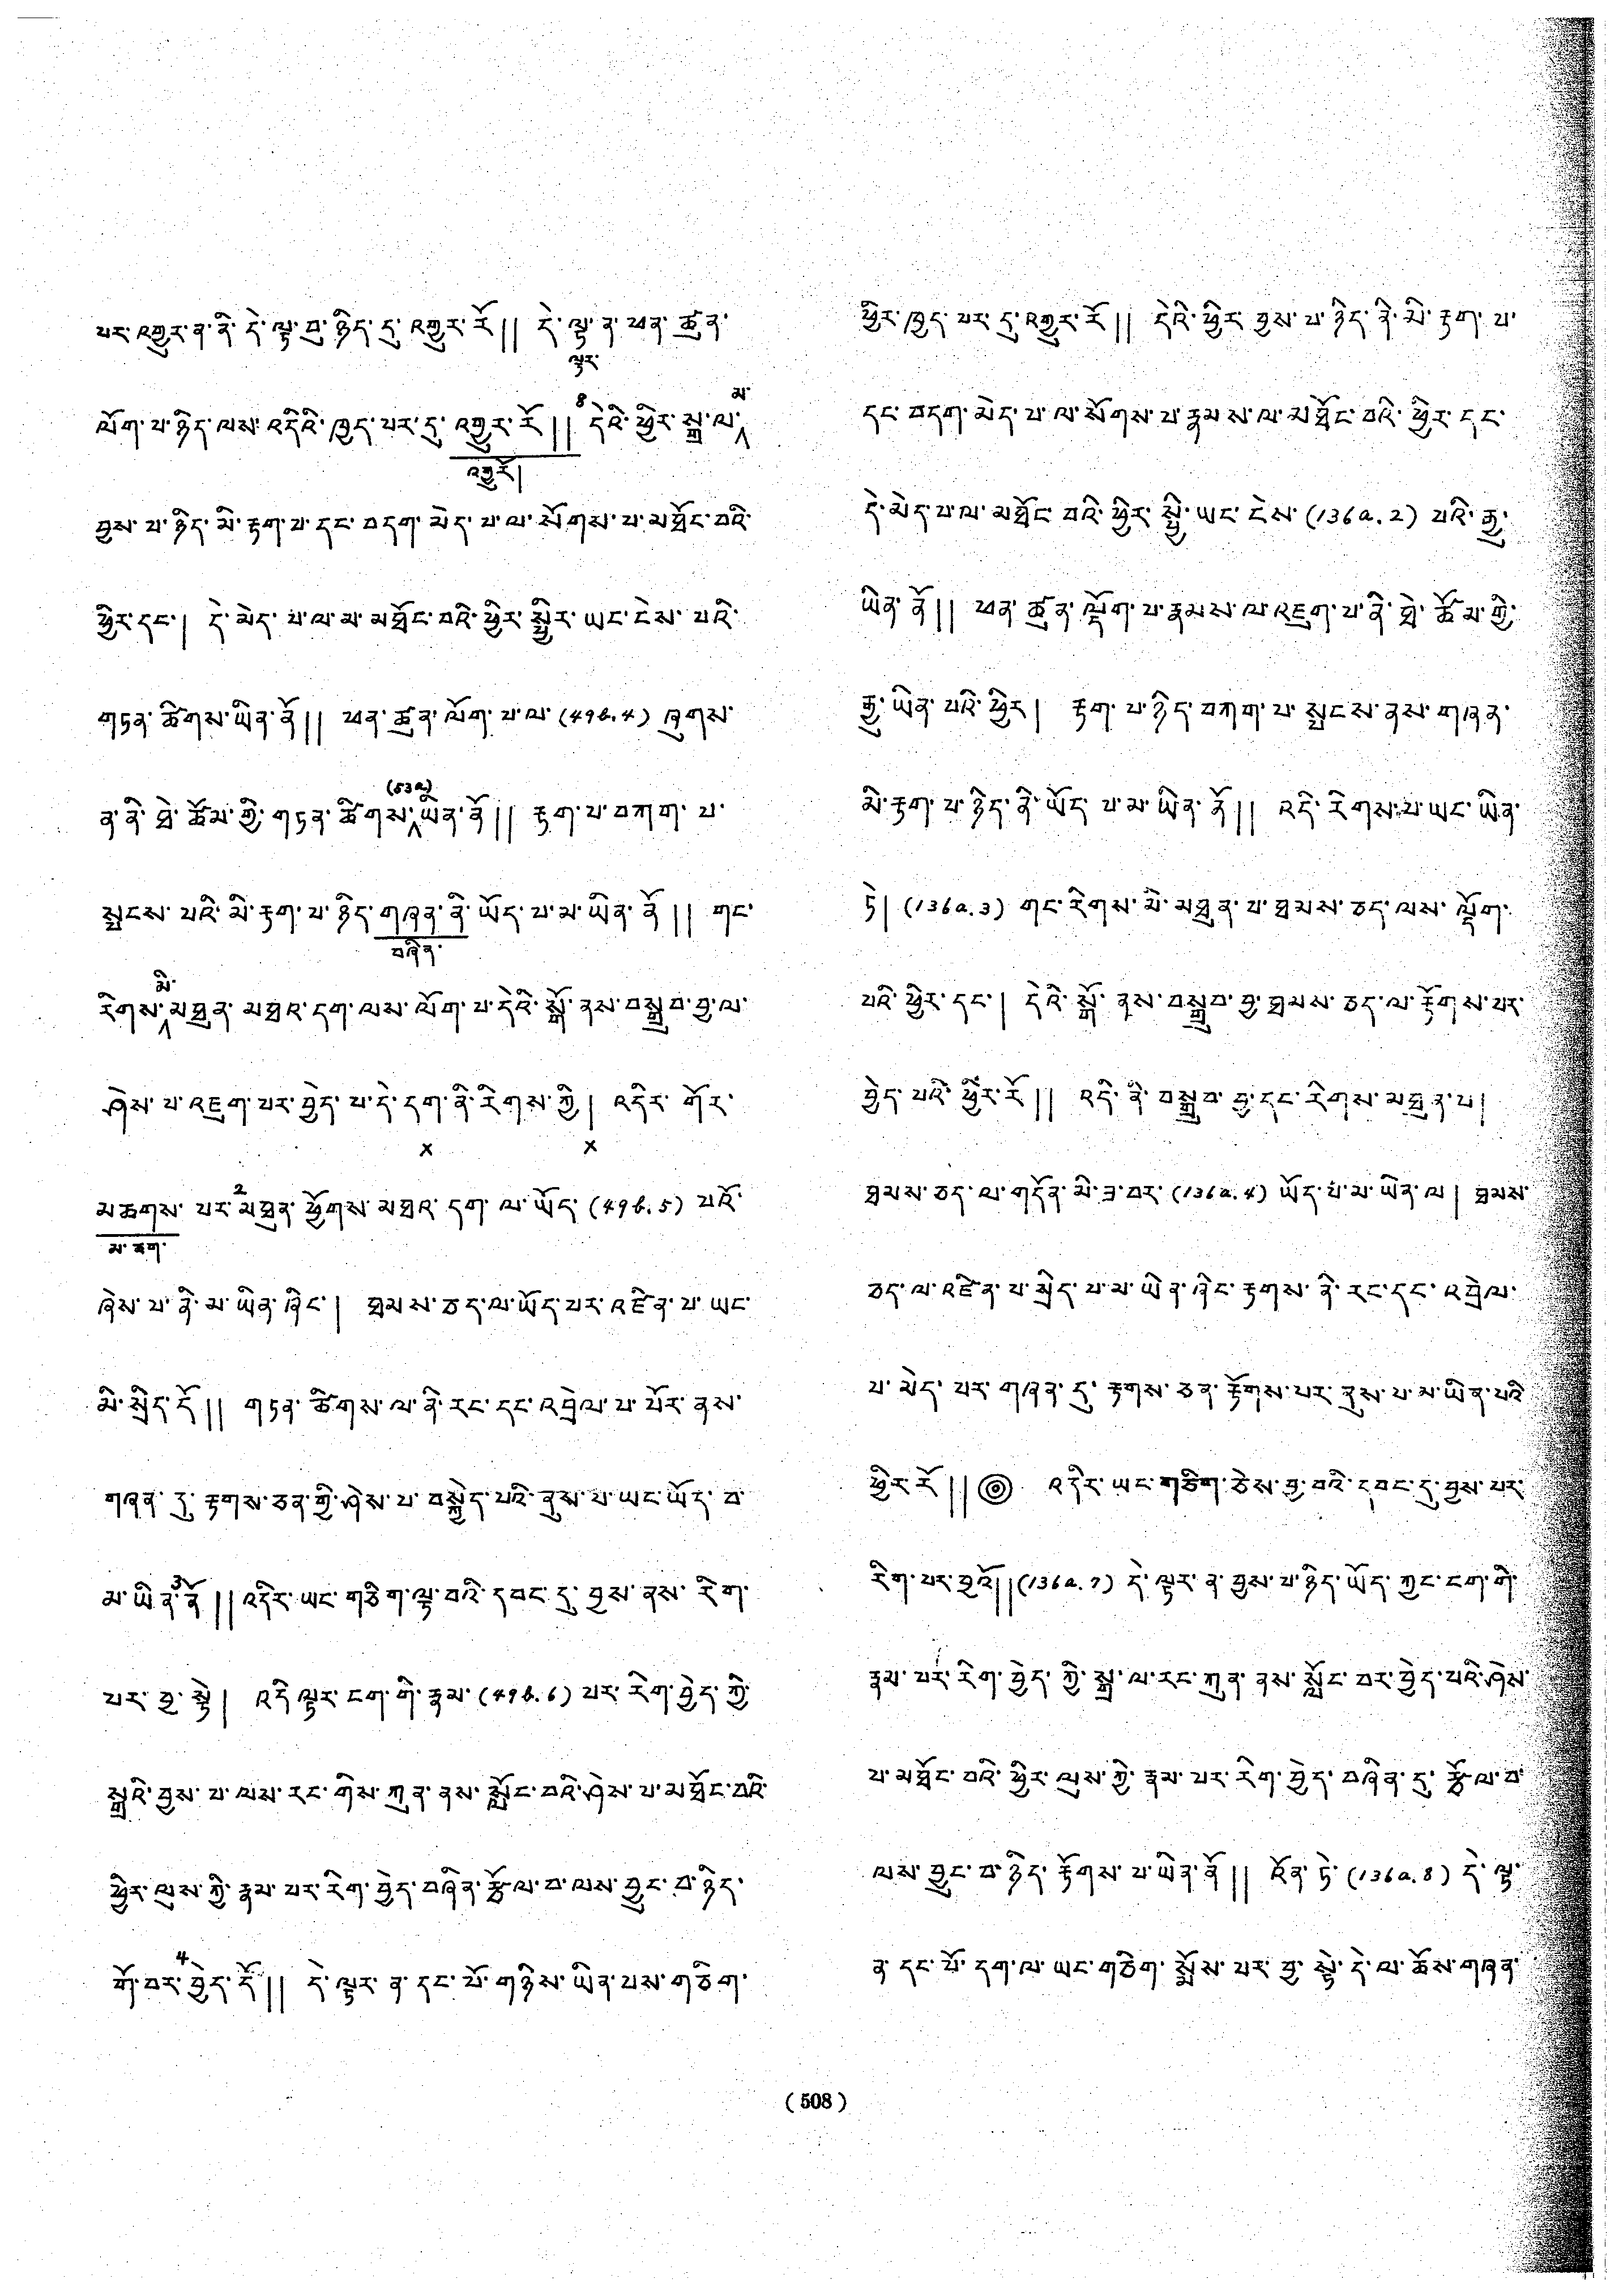 པར་འགྱུར་ན་ནི་དེ་ལྟ་བུ་ཉིད་དུ་འགྱུར་རོ།། དེ་ལྟ་ན་ཕན་ཚུན་
ལྟར་
མ་
ལོག་པ་ཉིད་ལས་འདིའི་ཁྱད་པར་དུ་འགྱུར་རོ།།8 དེའི་ཕྱིར་སྒྲ་ལ་
འགྱུརོ།
བྱས་པ་ཉིད་མི་རྟག་པ་དང་བདག་མེད་པ་ལ་སོགས་པ་མཐོང་བའི་
ཕྱིར་དང་། དེ་མེད་པ་ལ་མ་མཐོང་བའི་ཕྱིར་སྤྱིར་ཡང་ངེས་པའི་
གཏན་ཚིགས་ཡིན་ནོ།། ཕན་ཚུན་ལོག་པ་ལ་(49b.4) ཞུགས་
(53a)
ན་ནི་ཐེ་ཚོམ་ཀྱི་གཏན་ཚིགས་ཡིན་ནོ།། རྟག་པ་བཀག་པ་
སྤངས་པའི་མི་རྟག་པ་ཉིད་གཞན་ནི་ཡོད་པ་མ་ཡིན་ནོ།། གང་
བཞིན་
མི་
རིགས་མཐུན་མཐའ་དག་ལས་ལོག་པ་དེའི་སྒོ་ནས་བསྒྲུབ་བྱ་ལ་
ཤེས་པ་འཇུག་པར་བྱེད་པ་དེ་དག་ནི་རིགས་ཀྱི། འདིར་གོར་
x x
མཆགས་པར་2མཐུན་ཕྱོགས་མཐའ་དག་ལ་ཡོད་(49b.5) པའོ་
མ་ཆག་
ཞེས་པ་ནི་མ་ཡིན་ཞིང་། ཐམས་ཅད་ལ་ཡོད་པར་འཛིན་པ་ཡང་
མི་སྲིད་དོ།། གཏན་ཚིགས་ལ་ནི་རང་དང་འབྲེལ་པ་པོར་ནས་
གཞན་དུ་རྟགས་ཅན་གྱི་ཤེས་པ་བསྐྱེད་པའི་ནུས་པ་ཡང་ཡོད་བ་
མ་ཡིན་3ནོ།། འདིར་ཡང་གཅིག་ལྟ་བའི་དབང་དུ་བྱས་ནས་རིག་
པར་བྱ་སྟེ། འདི་ལྟར་ངག་གི་རྣམ་(49b.6) པར་རིག་བྱེད་ཀྱི་
སྒྲའི་བྱས་པ་ལས་རང་གིས་ཀུན་ནས་སློང་བའི་ཤེས་པ་མཐོང་བའི་
ཕྱིར་ལུས་ཀྱི་རྣམ་པར་རིག་བྱེད་བཞིན་རྩོལ་བ་ལས་བྱུང་བ་ཉིད་
གོ་བར་4བྱེད་དོ།། དེ་ལྟར་ན་དང་པོ་གཉིས་ཡིན་པས་གཅིག་
ཕྱིར་ཁྱད་པར་དུ་འགྱུར་རོ།། དེའི་ཕྱིར་བྱས་པ་ཉིད་ནི་མི་རྟག་པ་
དང་བདག་མེད་པ་ལ་སོགས་པ་རྣམས་ལ་མཐོང་བའི་ཕྱིར་དང་
དེ་མེད་པ་ལ་མཐོང་བའི་ཕྱིར་སྤྱི་ཡང་ངེས་(136a.2) པའི་རྒྱུ་
ཡིན་ནོ།། ཕན་ཚུན་ལྡོག་པ་རྣམས་ལ་འཇུག་པ་ནི་ཐེ་ཚོམ་གྱི་
རྒྱུ་ཡིན་པའི་ཕྱིར། རྟག་པ་ཉིད་བཀག་པ་སྤངས་ནས་གཞན་
མི་རྟག་པ་ཉིད་ནི་ཡོད་པ་མ་ཡིན་ནོ།། འདི་རིགས་པ་ཡང་ཡིན་
ཏེ། (136a.3) གང་རིགས་མི་མཐུན་པ་ཐམས་ཅད་ལས་ལྡོག་
པའི་ཕྱིར་དང་། དེའི་སྒོ་ནས་བསྒྲུབ་བྱ་ཐམས་ཅད་ལ་རྟོགས་པར་
བྱེད་པའི་ཕྱིར་རོ།། འདི་ནི་བསྒྲུབ་བྱ་དང་རིགས་མཐུན་པ།
ཐམས་ཅད་ལ་གདོན་མི་ཟ་བར་(136a.4) ཡོད་པ་མ་ཡིན་ལ། ཐམས་
ཅད་ལ་འཛིན་པ་སྲིད་པ་མ་ཡིན་ཞིང་རྟགས་ནི་རང་དང་འབྲེལ་
པ་མེད་པར་གཞན་དུ་རྟགས་ཅན་རྟོགས་པར་ནུས་པ་མ་ཡིན་པའི་
ཕྱིར་རོ།།◎ འདིར་ཡང་གཅིག་ཅེས་བྱ་བའི་དབང་དུ་བྱས་པར་
རིག་པར་བྱའོ།།(136a.7) དེ་ལྟར་ན་བྱས་པ་ཉིད་ཡོད་ཀྱང་ངག་གི་
རྣམ་པར་རིག་བྱེད་ཀྱི་སྒྲ་ལ་རང་ཀུན་ནས་སློང་བར་བྱེད་པའི་ཤེས་
པ་མཐོང་བའི་ཕྱིར་ལུས་ཀྱི་རྣམ་པར་རིག་བྱེད་བཞིན་དུ་རྩོལ་བ་
ལས་བྱུང་བ་ཉིད་རྟོགས་པ་ཡིན་ནོ།། འོན་ཏེ་(136a.8) དེ་ལྟ་
ན་དང་པོ་དག་ལ་ཡང་གཅིག་སྨོས་པར་བྱ་སྟེ་དེ་ལ་ཆོས་གཞན་
(508)